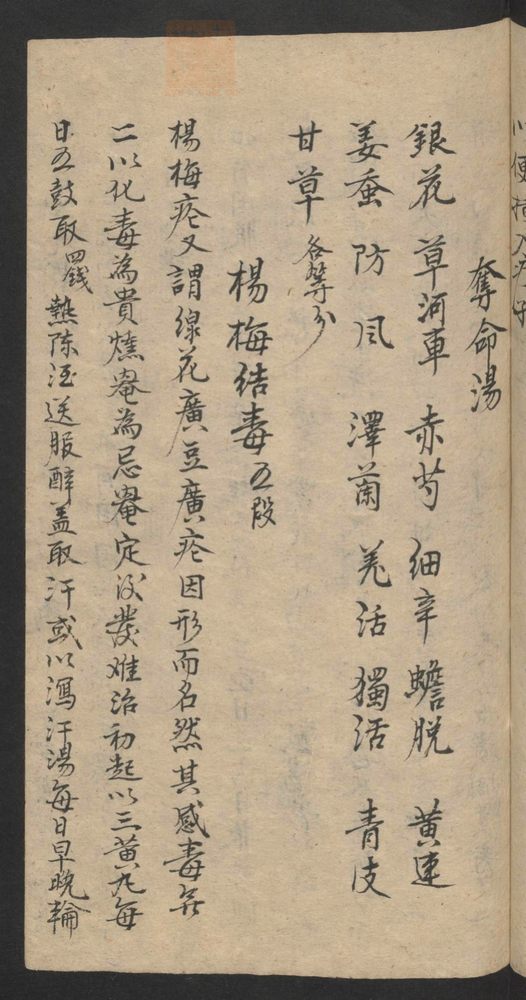 奪命湯
銀花 草河車 赤芍 細辛 蟾脫 黃連
姜蚕 防風 澤蘭 羌活 獨活 青皮
甘草 各等分
楊梅结毒 五段
楊梅疮又謂綿花廣豆廣疮因形而名然其感毒無
二以化毒為貴燻罨為忌罨定後發难治初起以三黃丸每
日五鼓取四錢熱陈酒送服醉盖取汗或以瀉汗湯每日早晚輪